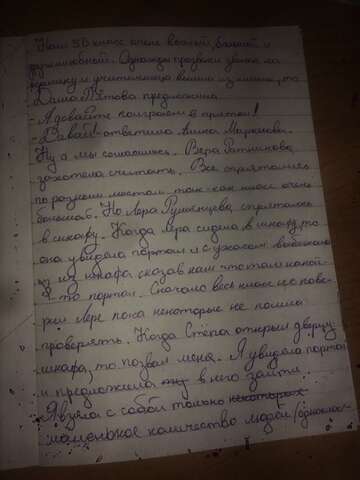 Наш 5В класс очень весёлый, большой и
дружелюбной. Однажды прозвенел звонок на
переменку и учительница вышла из класса, то
Даша Пятова предложила
- А давайте поиграем в прятки!
- Давай! - ответила Алина Маркисова.
Ну а мы согласились. Вера Ратникова
захотела считать. Все спрятались
по разным местам, так как класс очень
большой. Но Лера Румянцева спряталась
в шкафу. Когда Лера сидела в шкафу, то
она увидела портал и с ужасом выбежала
из шкафа сказав нам что там какой
- то портал. Сначало весь класс не пове-
рил Лере пока некоторые не пошли
проверять. Когда Стёпа открыл дверцу
шкафа, то позвал меня. Я увидела портал
и предложила в него зайти.
Я взяла с собой только
маленькое количество людей (однокла-